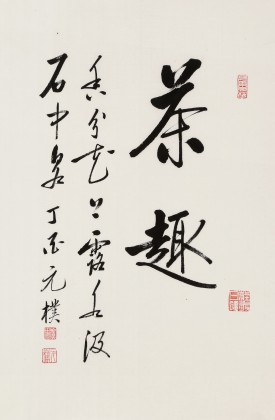 茶趣
香分花上露水汲
石中泉丁酉元樸